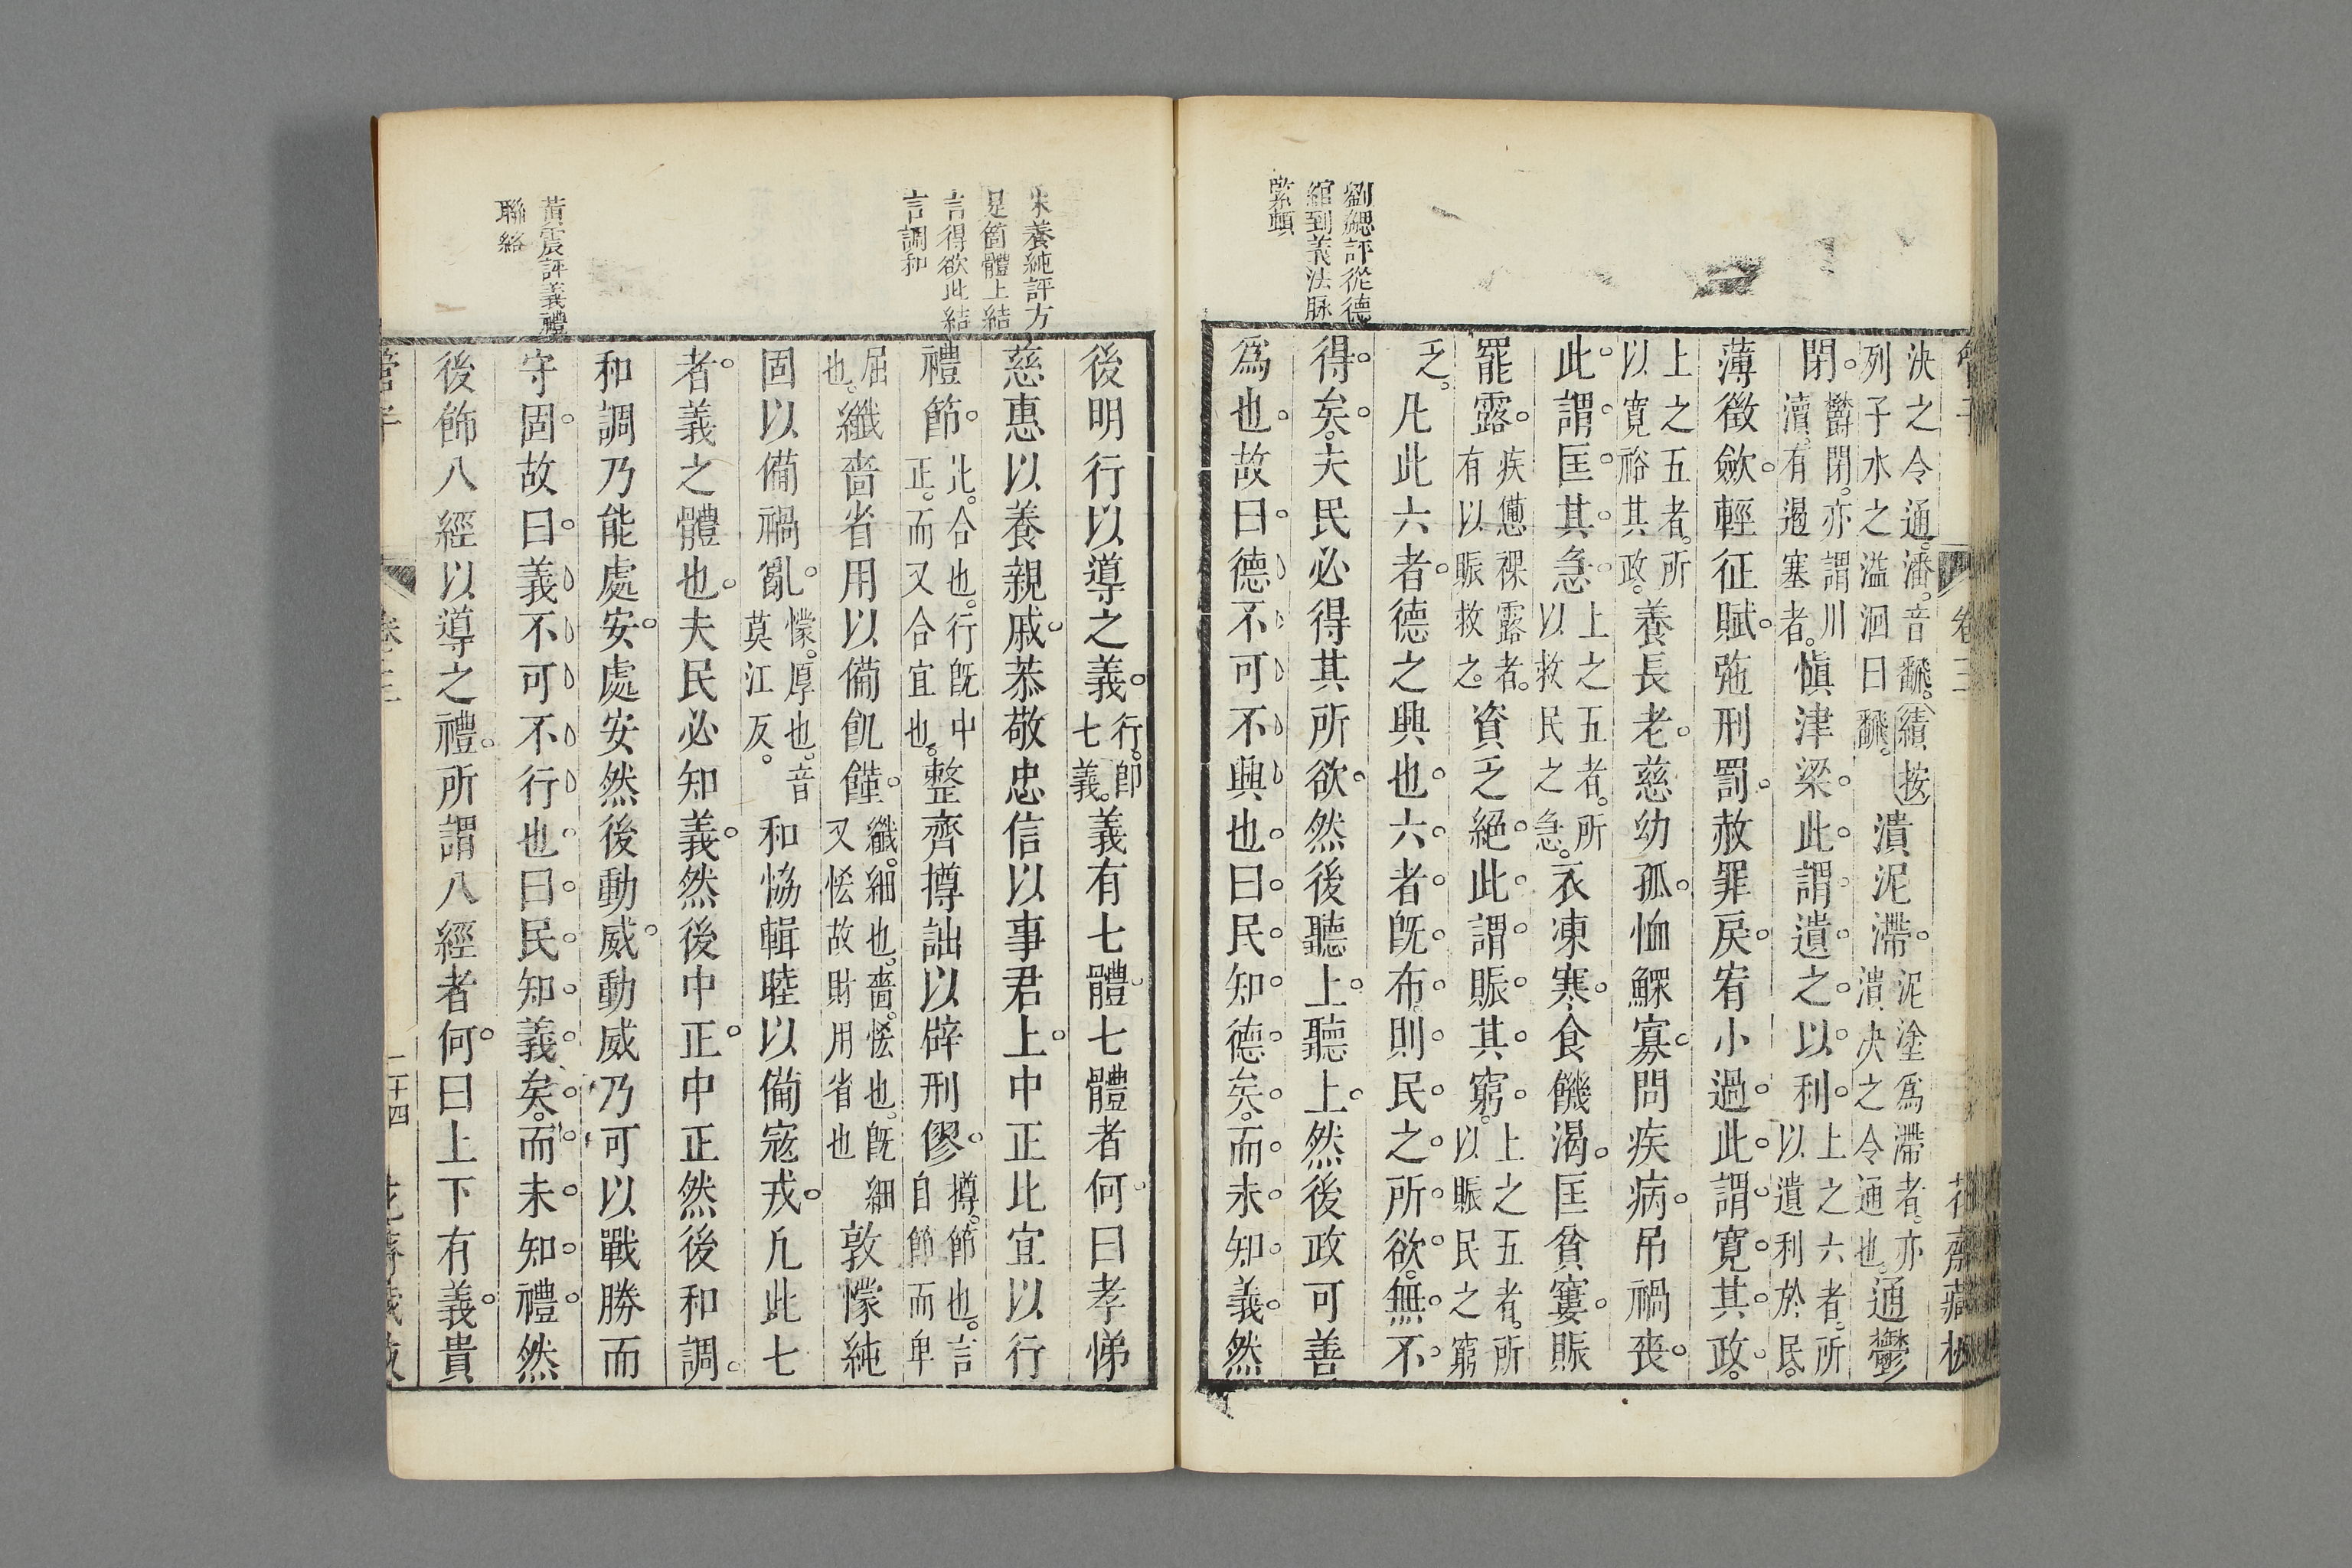 決之令通。潘。音飜。續按
列子水之溢洄曰飜。
潰泥滯。
泥塗爲滯者。亦
潰決之令通也。
通鬱
閉。
鬱閉。亦謂川
瀆。有遏塞者。
愼津梁。此謂遺之以利。
上之六者。所
以遺利於民。
薄徵歛。輕征賦。弛刑罰。赦罪戾。宥小過。此謂寬其政。
上之五者。所
以寛裕其政。
養長老。慈幼孤。恤鰥寡。問疾病。吊禍喪。
此謂匡其急。
上之五者。所
以救民之急。
衣凍寒。食饑渴。匡貧窶。賑
罷露。
疾憊裸露者。
有以賑救之。
資乏絕。此謂賑其窮。
上之五者。所
以賑民之窮
乏。
凡此六者。德之興也。六者。旣布。則民之所欲。無不
得矣。夫民必得其所欲。然後聽上。聽上。然後政可善
爲也。故曰。德不可不興也。曰。民知德矣。而未知義。然
劉勰評從德
綰到義法脉
緊頓
後明行以導之義。
行。卽
七義。
義有七體。七體者何。曰孝悌
慈惠以養親戚。恭敬忠信以事君上。中正比宜以行
禮節。
比。合也。行旣中
正。而又合宜也。
整齊撙詘以辟刑僇。
撙。節也。言
自節而卑
屈
也。
纖嗇省用以備飢饉。
纖。細也。嗇。恡也。旣細
又恡故財用省也
敦懞純
固以備禍亂。
懞。厚也。音
莫江反。
和恊輯睦以備寇戎。凡此七
者。義之體也。夫民必知義。然後中正。中正然後和調。
和調乃能處安。處安然後動威。動威乃可以戰勝而
守固。故曰。義不可不行也。曰。民知義矣。而未知禮。然
後飾八經以導之禮。所謂八經者何。曰上下有義。貴
養純評方
是箇體上結
言得欲此結
言調和
黃震評義禮
聯絡
管子
卷三
二十四